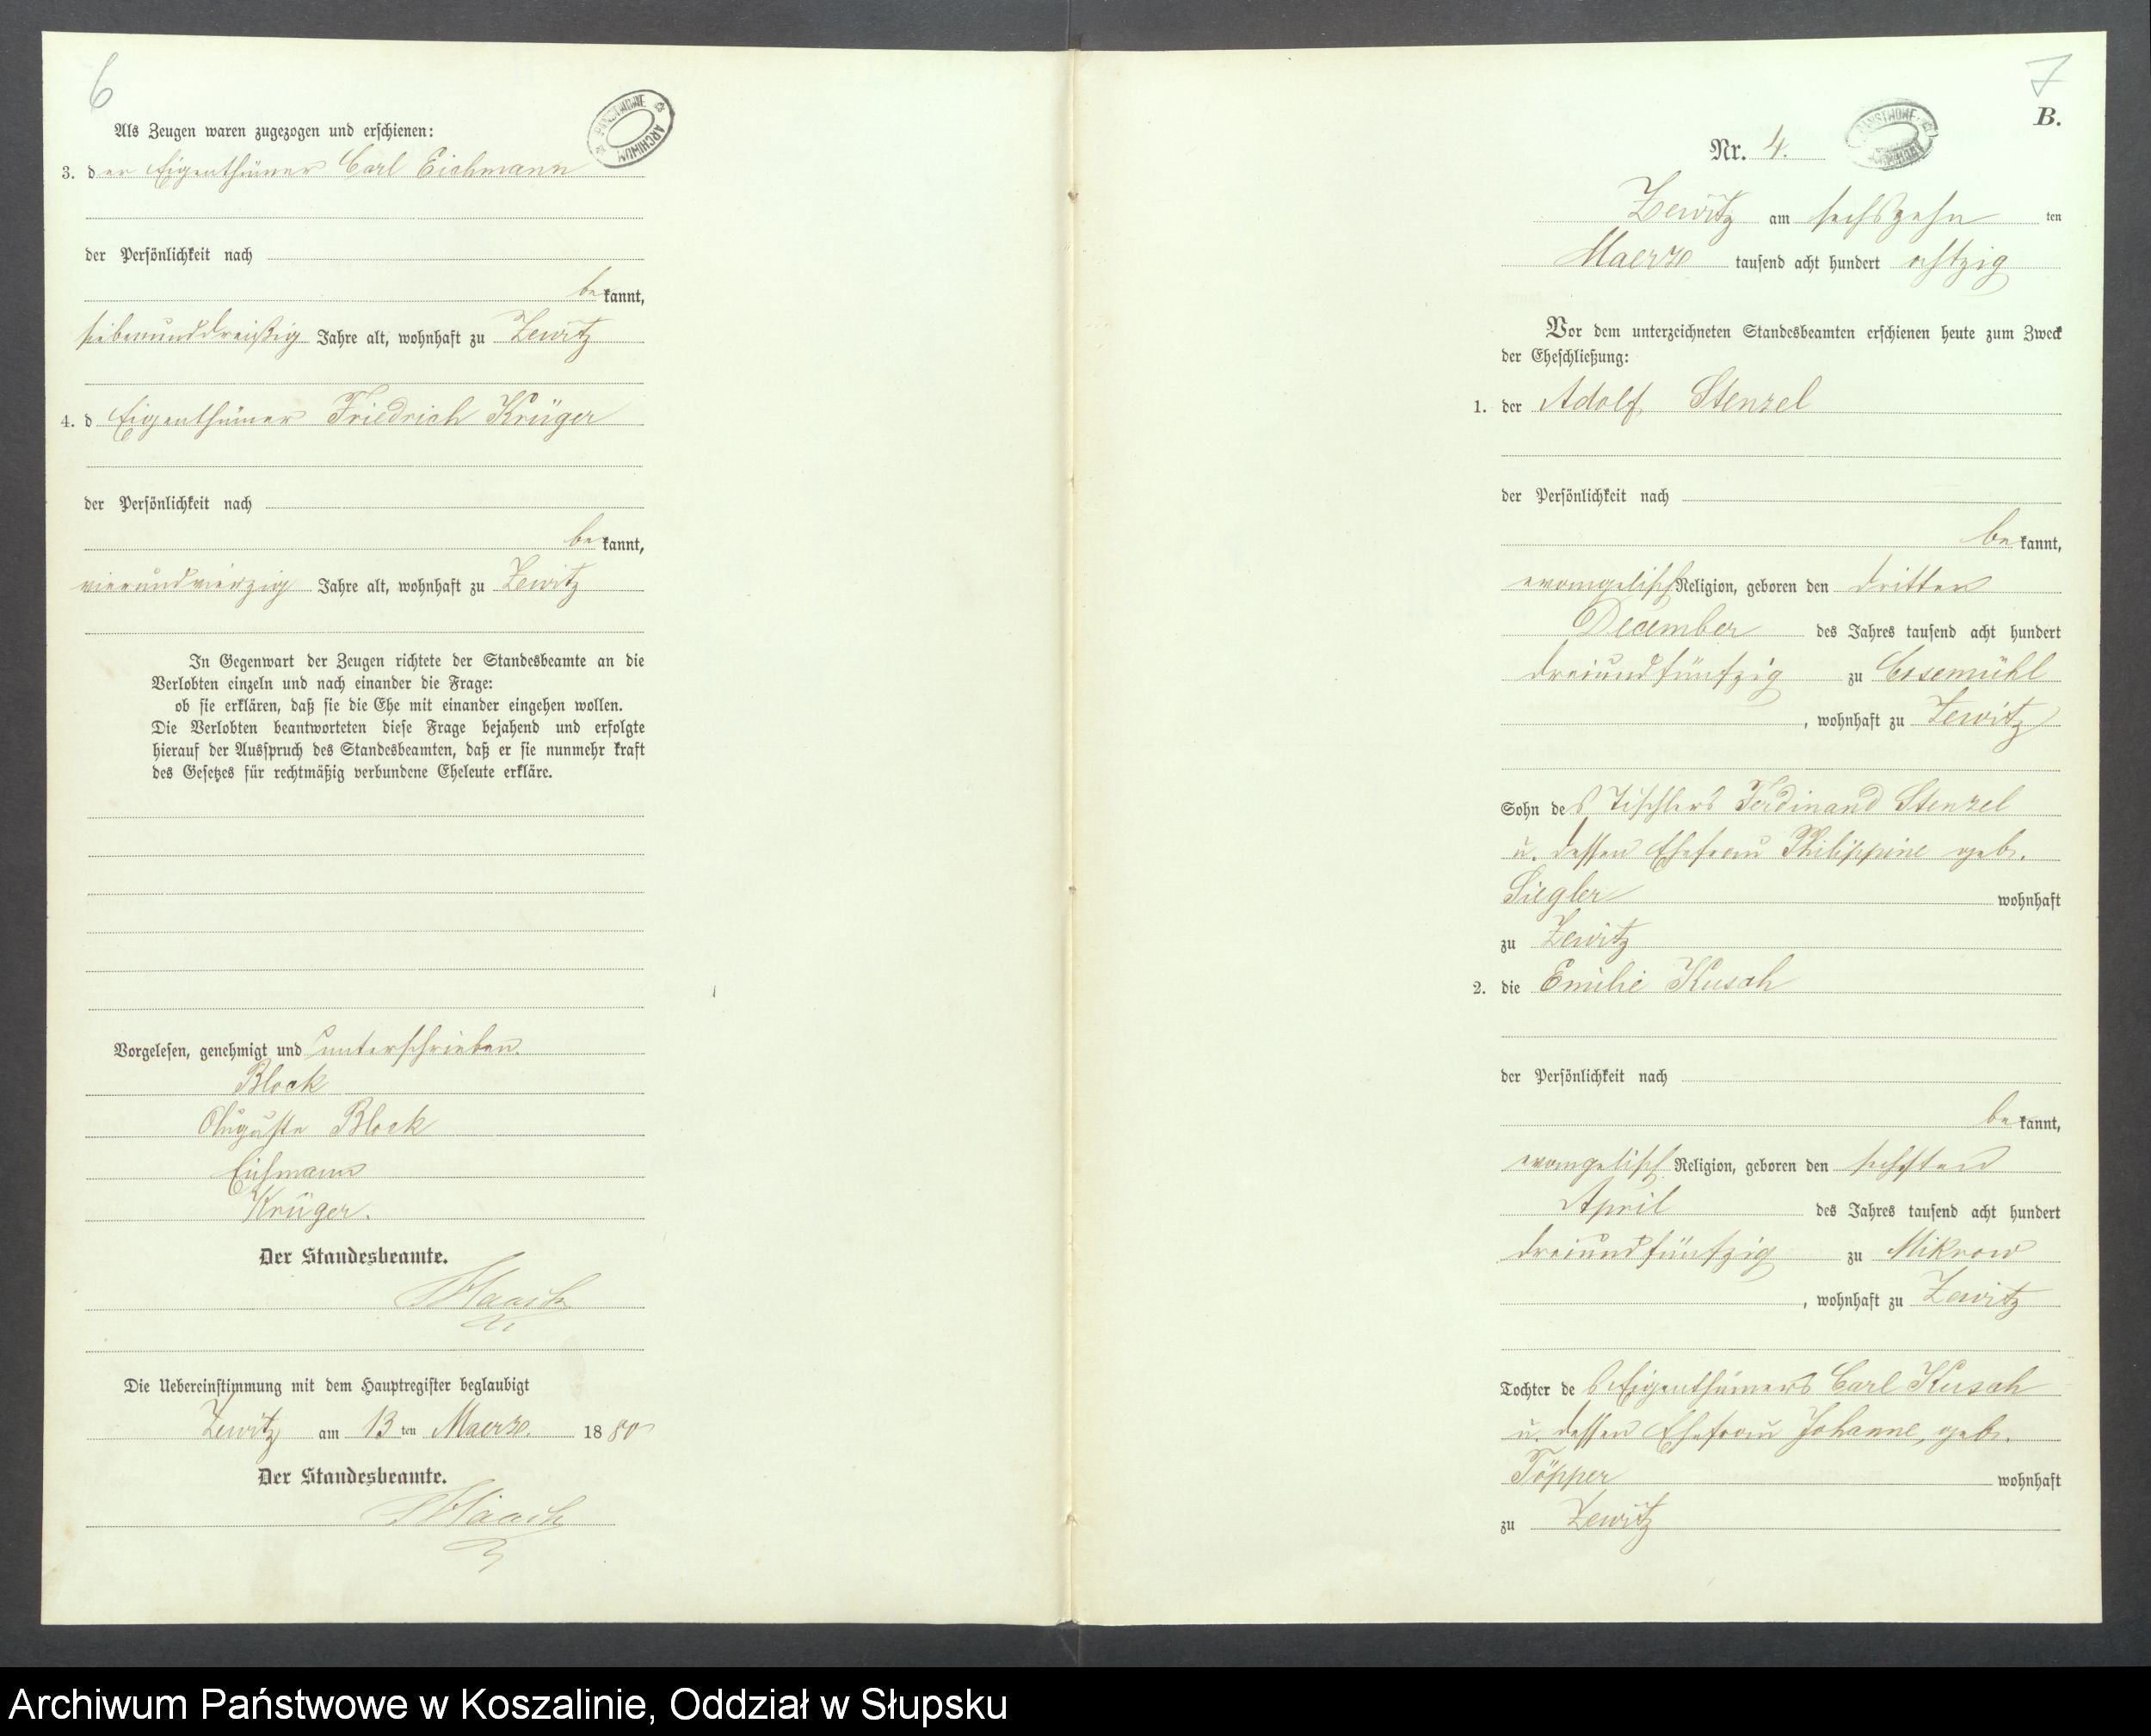 6
Als Zeugen waren zugezogen und erschienen:
3. der Eigenthümer Carl Eichmann
der Persönlichkeit nach
bekannt,
siebenunddreißig Jahre alt, wohnhaft zu Zewitz
4. d Eigenthümer Friedrich Krüger
der Persönlichkeit nach
bekannt,
vierundvierzig Jahre alt, wohnhaft zu Zewitz
In Gegenwart der Zeugen richtete der Standesbeamte an die
Verlobten einzeln und nach einander die Frage:
ob sie erklären, daß sie die Ehe mit einander eingehen wollen.
Die Verlobten beantworteten diese Frage bejahend und erfolgte
hierauf der Ausspruch des Standesbeamten, daß er sie nunmehr kraft
des Gesetzes für rechtmäßig verbundene Eheleute erkläre.
Vorgelesen, genehmigt und unterschrieben.
Block
Auguste Block
Eichmann
Krüger.
Der Standesbeamte.
Die Uebereinstimmung mit dem Hauptregister beglaubigt
Zewitz am 13 ten Maerz. 1880
Der Standesbeamte.
7
B.
PAŃSTWOWE ARCHIWUM
Nr. 4.
Zewitz am sechszehn ten
Maerz tausend acht hundert achtzig
Vor dem unterzeichneten Standesbeamten erschienen heute zum Zweck
der Eheschließung:
1. der Adolf Stenzel
der Persönlichkeit nach
bekannt,
evangelisch Religion, geboren den dritten
December des Jahres tausend acht hundert
dreiundfünfzig zu
, wohnhaft zu Zewitz
Sohn des Tischlers Ferdinand Stenzel
u. dessen Ehefrau Philippine geb.
Siegler wohnhaft
zu Zewitz
2. die Emilie Kusch
der Persönlichkeit nach
bekannt,
evangelisch Religion, geboren den sechsten
April des Jahres tausend acht hundert
dreiundfünfzig zu Mikrow
, wohnhaft zu Zewitz
Tochter des Eigenthümers Carl Kusch
u. dessen Ehefrau Johanne, geb.
Töpper wohnhaft
zu Zewitz
Archiwum Państwowe w Koszalinie, Oddział w Słupsku